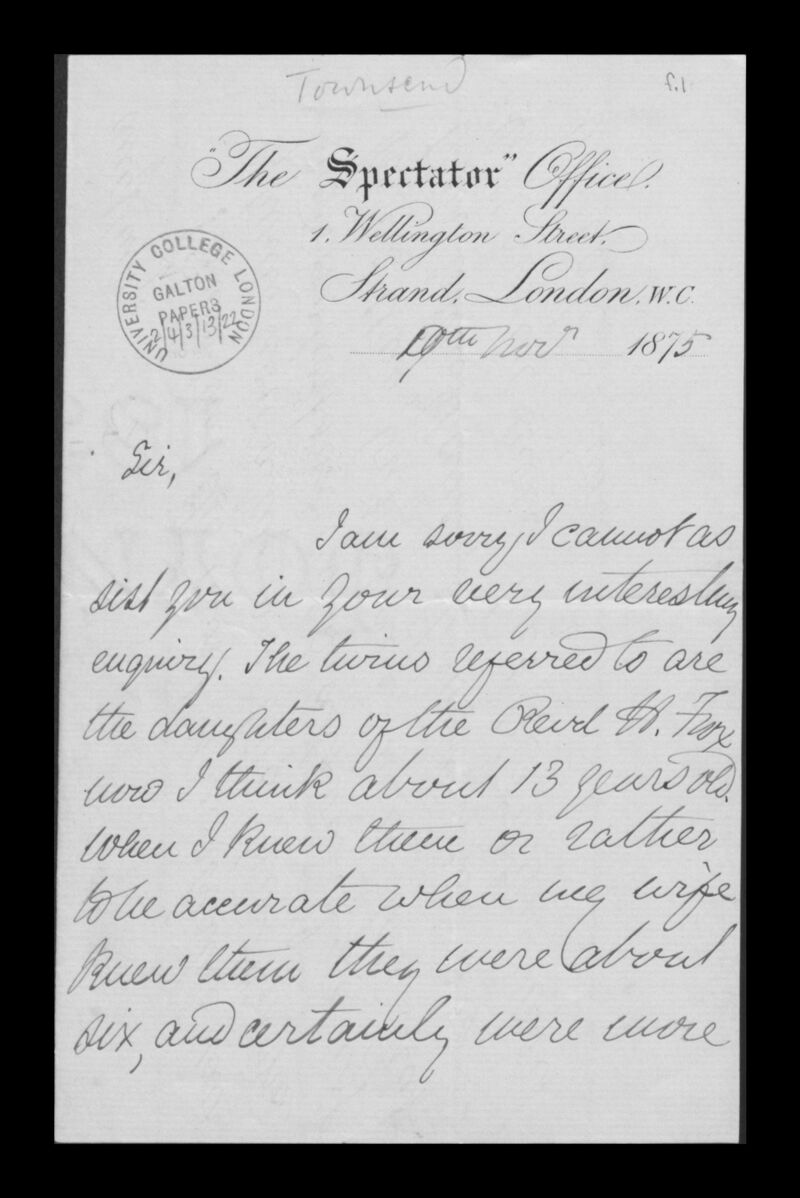 Townsend
f.1
"The Spectator" Office.
1. Wellington Street.
Strand. London. W.C.
UNIVERSITY COLLEGE LONDON
GALTON
PAPERS
2/4/3/13/22
Novr 1875
Sir,
I am sorry I cannot as
sist you in your very interesting
enquiry. The twins referred to are
the daughters of the Revd H. Fox
now I think about 13 years old.
When I knew them or rather
to be accurate when my wife
knew them they were about
six, and certainly were more